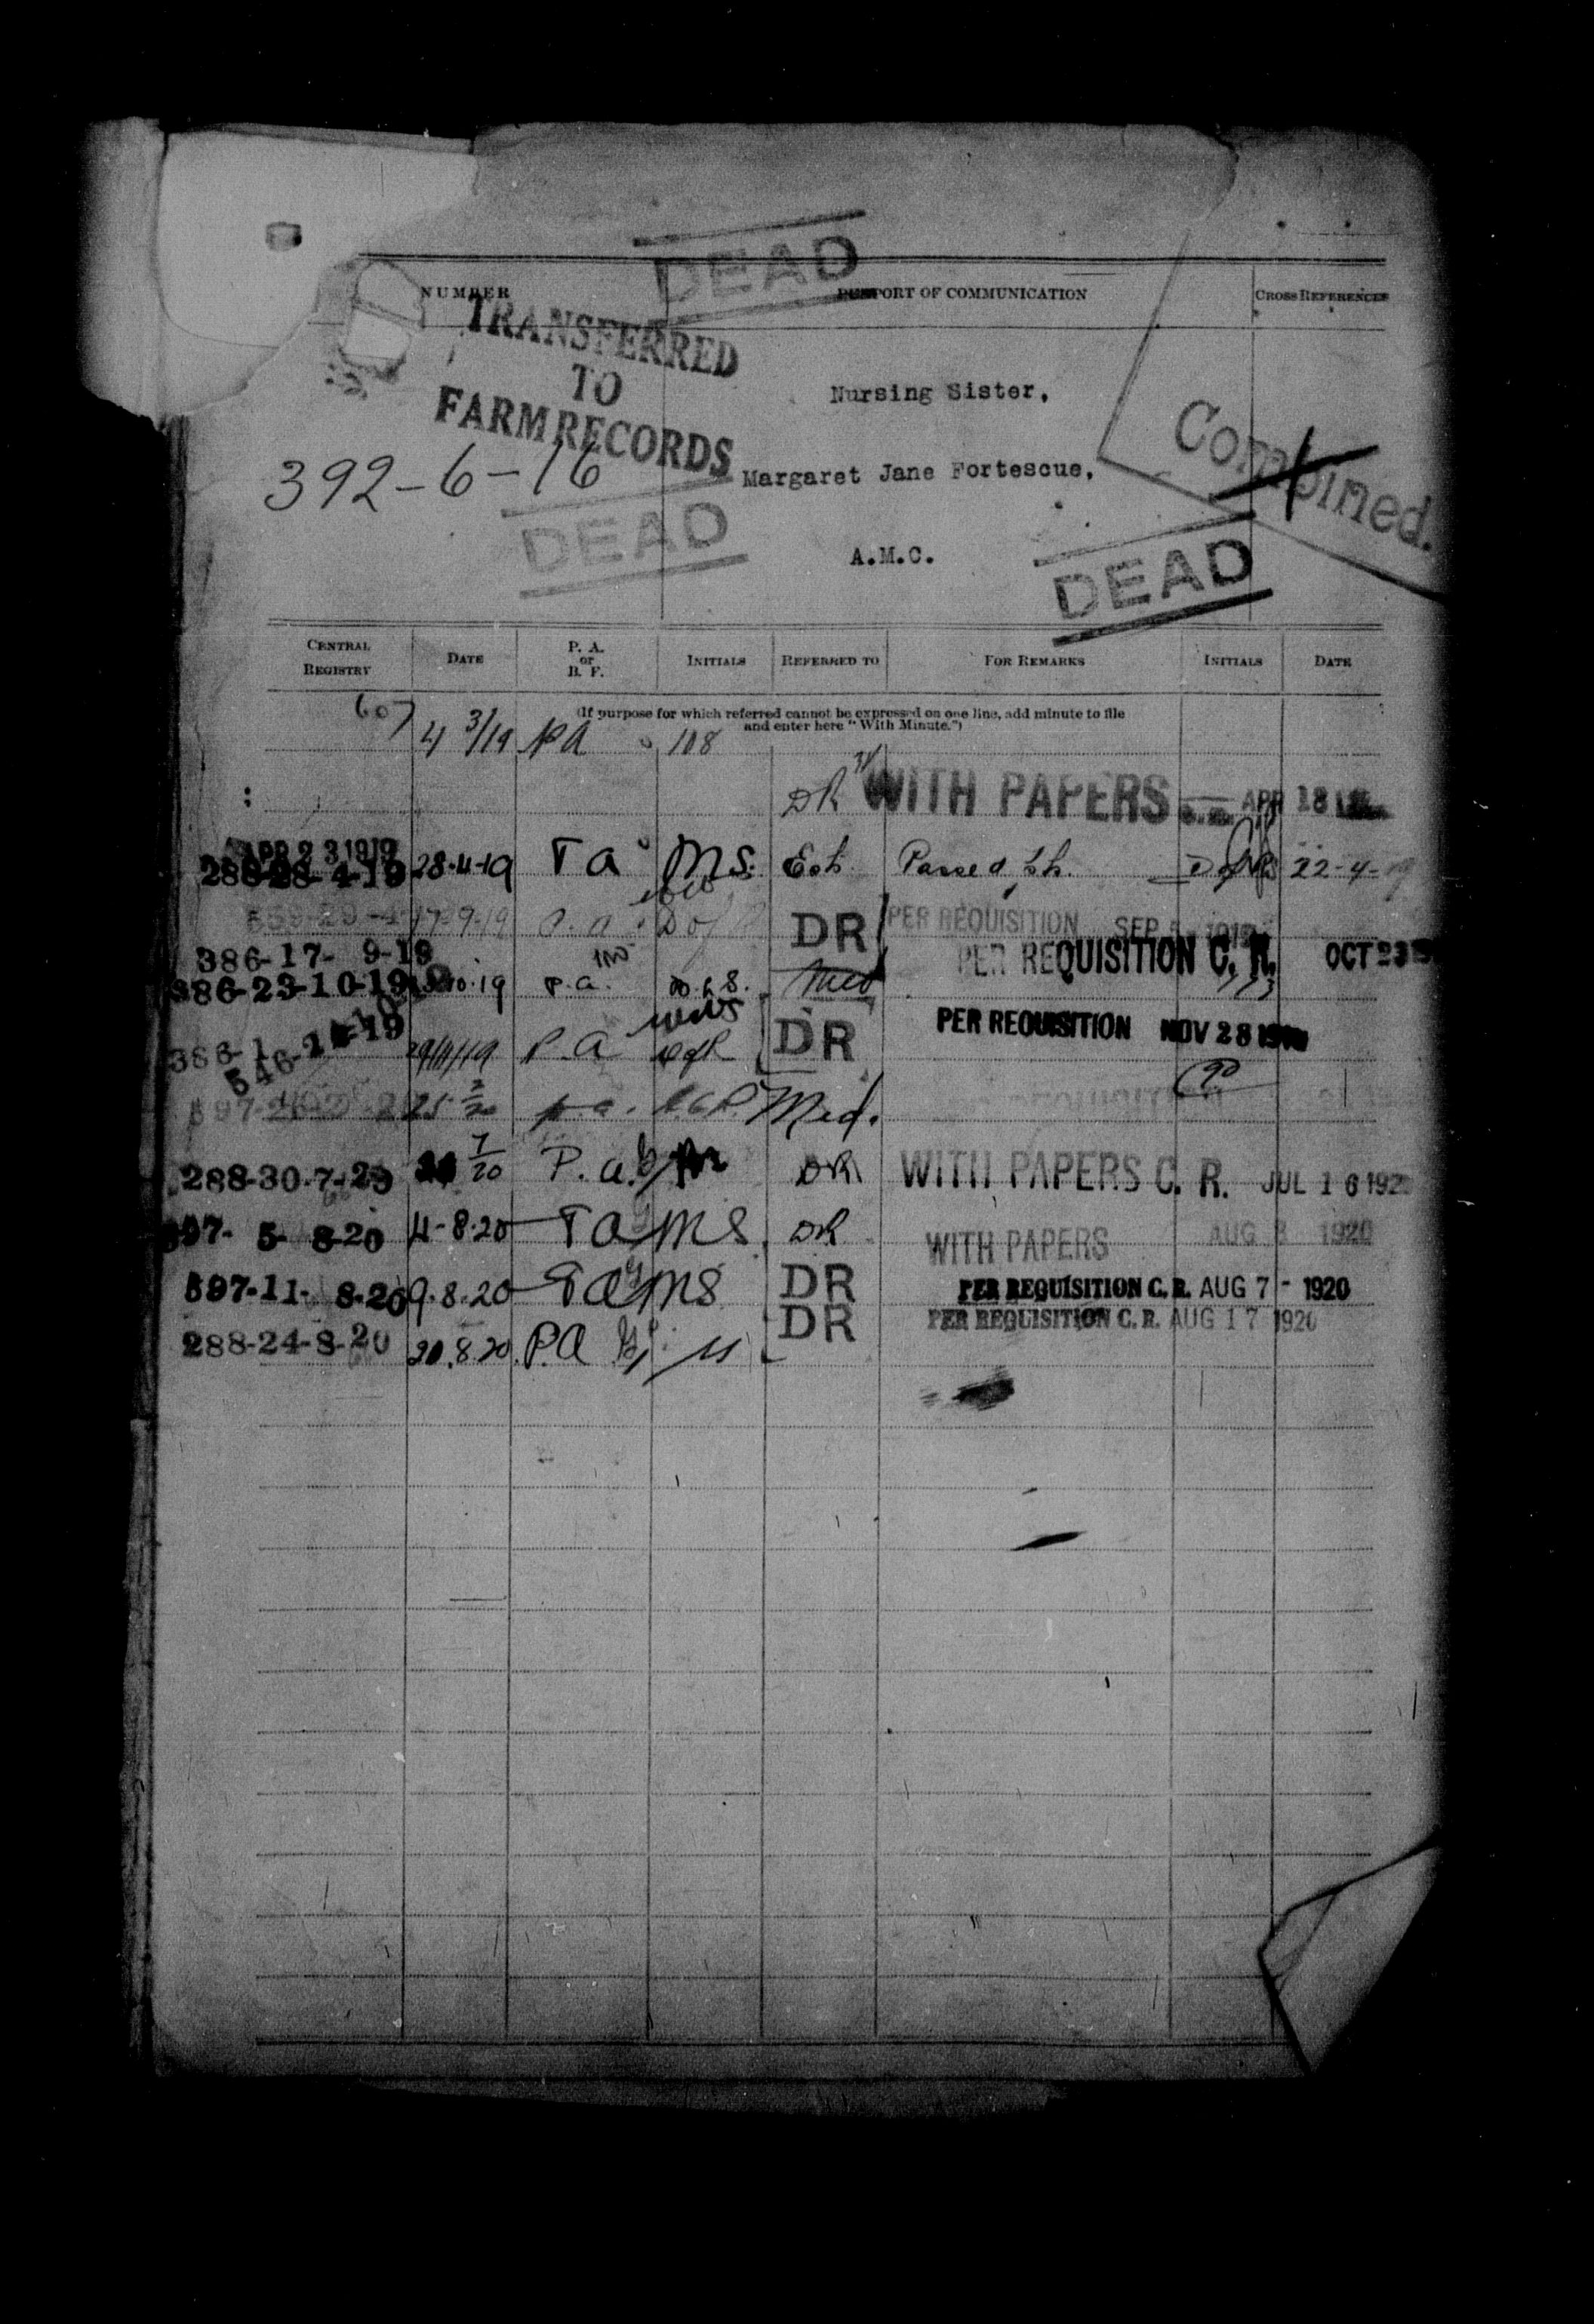 DEAD
NUMBER PURPORT OF COMMUNICATION CROSS REFERENCES
TRANSFERRED
TO
FARM RECORDS
Nursing Sister,
Combined.
392-6-16
Margaret Jane Fortescue,
DEAD
A.M.C.
DEAD
CENTRAL REGISTRY DATE P. A. or B. F. INITIALS REFERRED TO FOR REMARKS INITIALS DATE
(If purpose for which referred cannot be expressed on one line, add minute to file
and enter here "With Minute.")
607 4 3/19 PA 108
DR WITH PAPERS APR 18
APR 23 1919
288-28-4-19 28-4-19 Ta MS. Est. Passed 22-4-19
17-9-19 DR PER REQUISITION SEP
386-17-9-19 PER REQUISITION C. R. OCT 23
386-23-10-19 P.a. Med
386-1 29/11/19 P.A DR PER REQUISITION NOV 28 1919
p.a. Med.
288-30-7-20 7/20 P.a. DR WITH PAPERS C. R. JUL 16 192
597-5-8-20 4-8-20 Ta MS DR WITH PAPERS AUG 3 1920
597-11-8-20 9.8.20 Ta MS DR PER REQUISITION C. R. AUG 7 - 1920
288-24-8-20 20.8.20 P.A DR PER REQUISITION C. R. AUG 17 1920